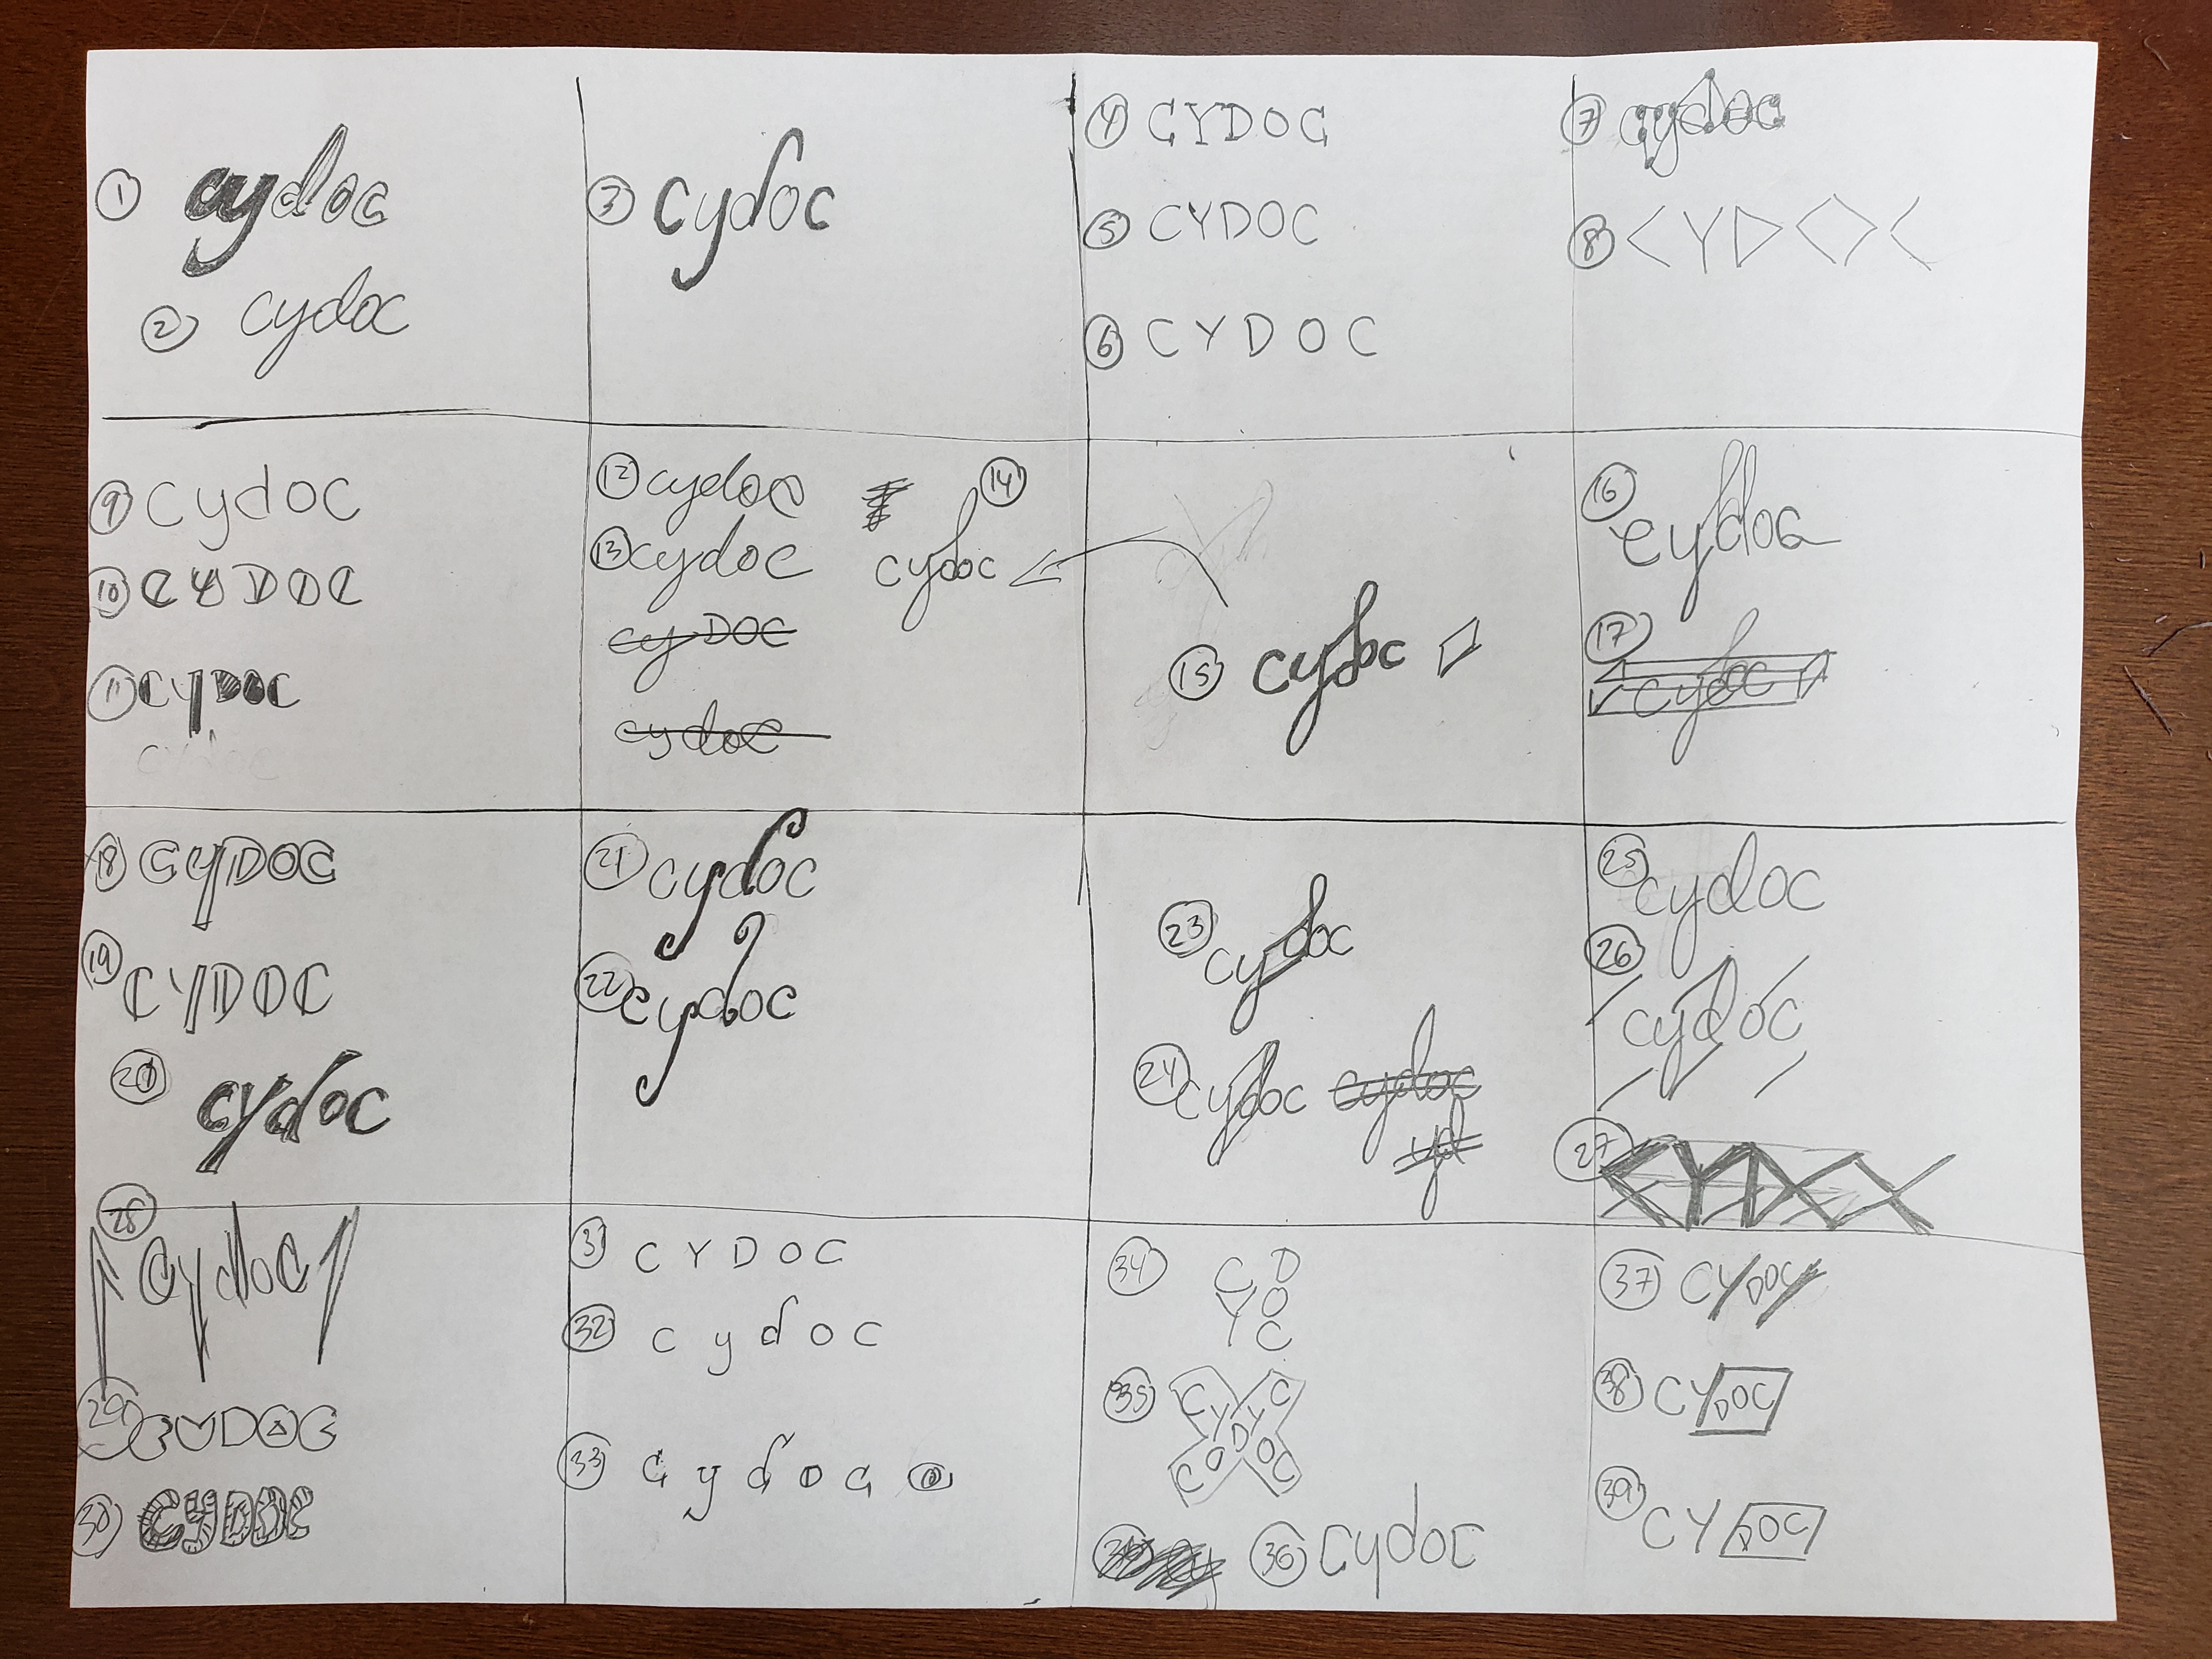 ① cydoc
② cydoc
③ cydoc
④ CYDOC
⑤ CYDOC
⑥ CYDOC
⑦ cydoc
⑧ <YD◇<
⑨ cydoc
⑩ CYDOC
⑪ cydoc
⑫ cydoc
⑬ cydoc
cyDOC
cydoc
⑭ cydoc
⑮ cydoc
⑯ cydoc
⑰ cydoc
⑱ CYDOC
⑲ CYDOC
⑳ cydoc
㉑ cydoc
㉒ cydoc
㉓ cydoc
㉔ cydoc cydoc
㉕ cydoc
㉖ cydoc
㉗
㉘ cydoc
㉙ CYDOC
㉚ CYDOC
㉛ CYDOC
㉜ cydoc
㉝ cydoc
㉞ CYDOC
㉟ CYDOC
CYDOC
㊱ cydoc
㊲ CYDOC
㊳ CYDOC
㊴ CYDOC